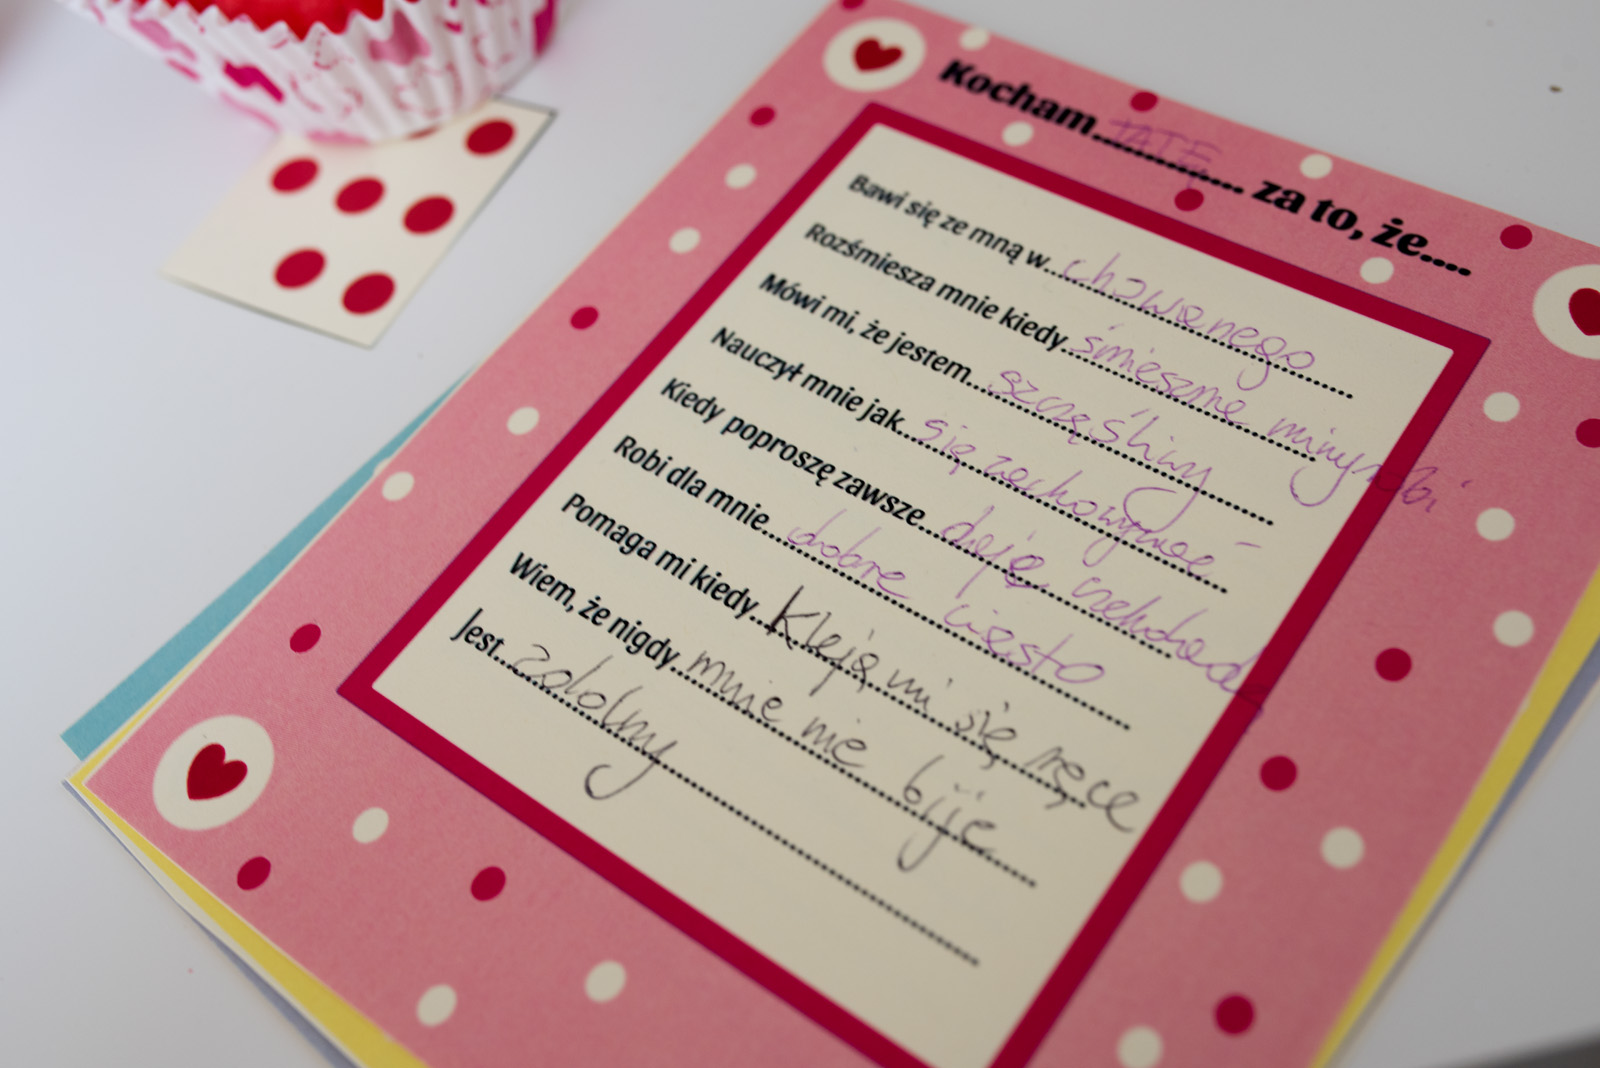 Kocham....TATĘ....za to, że....
Bawi się ze mną w....chowanego
Rozśmiesza mnie kiedy....śmieszne miny robi
Mówi mi, że jestem....szczęśliwy
Nauczył mnie jak....się zachowywać
Kiedy poproszę zawsze....daje
Robi dla mnie....dobre ciasto
Pomaga mi kiedy....kleją mi się ręce
Wiem, że nigdy....mnie nie bije
Jest....zdolny